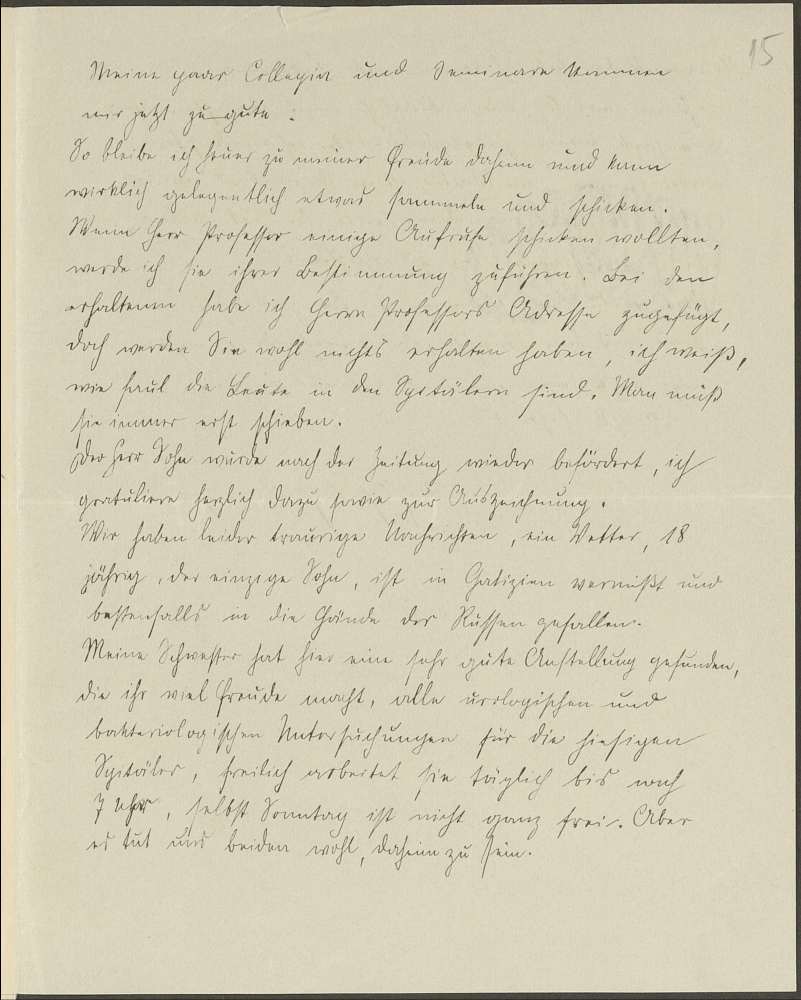 15
Meine paar Collegia und Seminare kommen
mir jetzt zu gute.
So bleibe ich heuer zu meiner Freude daheim und kann
wirklich gelegentlich etwas sammeln und schicken.
Wenn Herr Professor einige Aufrufe schicken wollten,
werde ich sie ihrer Bestimmung zuführen. Bei den
erhaltenen habe ich Herrn Professors Adresse zugefügt,
doch werden Sie wohl nichts erhalten haben, ich weiß,
wie faul die Leute in den Spitälern sind. Man muß
sie immer erst schieben.
Der Herr Sohn wurde nach der Zeitung wieder befördert, ich
gratuliere herzlich dazu sowie zur Auszeichnung.
Wir haben leider traurige Nachrichten, ein Vetter, 18
jährig, der einzige Sohn, ist in Galizien vermißt und
bestenfalls in die Hände der Russen gefallen.
Meine Schwester hat hier eine sehr gute Anstellung gefunden,
die ihr viel Freude macht, alle urologischen und
bakteriologischen Untersuchungen für die hiesigen
Spitäler, freilich arbeitet sie täglich bis nach
7 Uhr, selbst Sonntag ist nicht ganz frei. Aber
es tut uns beiden wohl, daheim zu sein.